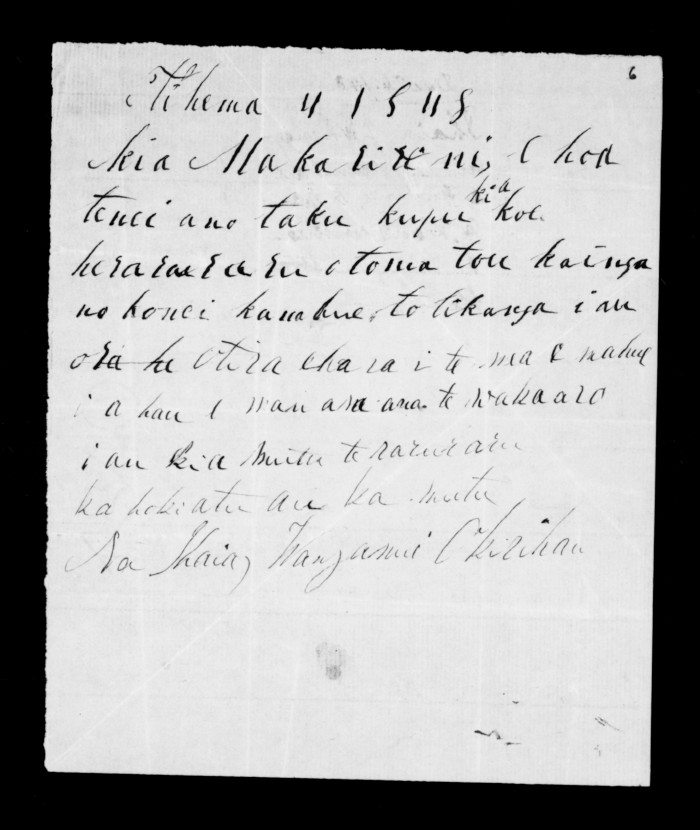 6
Tihema 4 1848
Kia Makarini, E hoa
tenei ano taku kupu kia koe
heraruraru otoma tou kainga
no konei kanahue to tikanga i au
ora he Otira ehara i te mea e mahue
i a hau E wanana ana te wakaaro
i au kia mutu te raruraru
ka hokiatu au ka mutu
Na Ihaia,